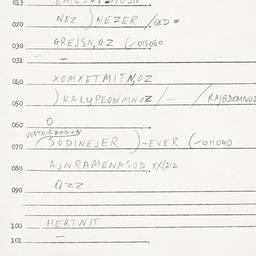 013
020 NEZ ) NEZER / GED =
030 GREJSN,OZ (-016060
031 —
040 XOMXETMITN,OZ
050 ) KALUPEODMNOZ / — /
060 O
070 (SODINEJER ) -EVER (-011040
080 AJNRAMENASOD XX/212
090 QZZ
100 HERTNIT
101 —